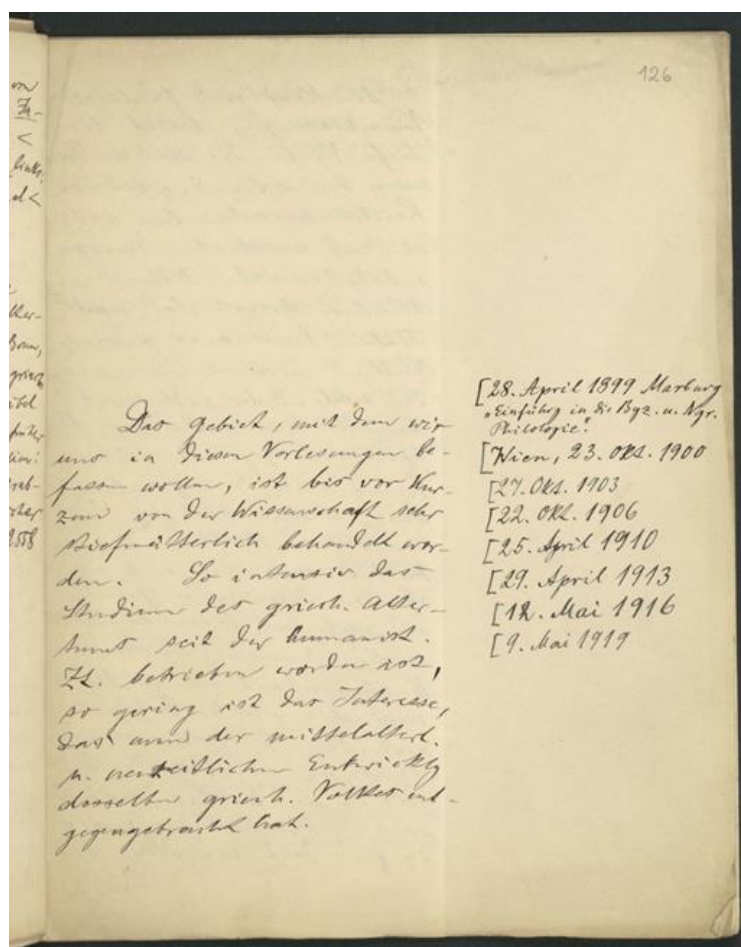 126
Das Gebiet, mit dem wir
uns in diesen Vorlesungen be-
fassen wollen, ist bis vor Kur-
zem von der Wissenschaft sehr
stiefmütterlich behandelt wor-
den. So intensiv das
Studium des griech. Alter-
tums seit der humanist.
Zt. betrieben worden ist,
so gering ist das Interesse,
das man der mittelalterl.
u. neuzeitlichen Entwicklg
desselben griech. Volkes ent-
gegengebracht hat.
[28. April 1899 Marburg
"Einführg in die Byz. u. Ngr.
Philologie".
[Wien, 23. Okt. 1900
[27. Okt. 1903
[22. Okt. 1906
[25. April 1910
[29. April 1913
[12. Mai 1916
[9. Mai 1919
links.